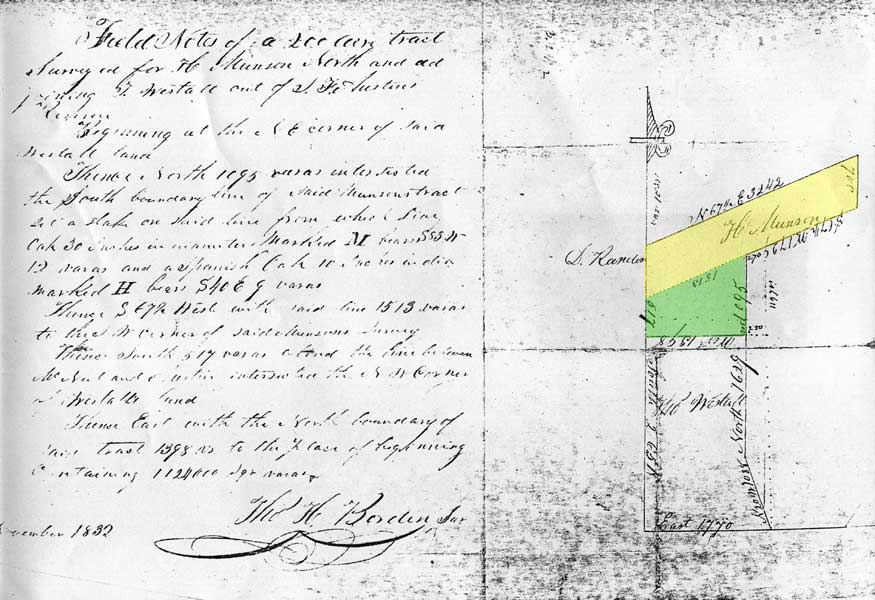 Field Notes of a 200 acre tract
Surveyed for H Munson North and ad
joining T Westall out of S F Austins
Beginning at the N E corner of said
Westall land
Thence North 1095 varas intersected
the South boundary line of said Munsons tract
set a stake on said line from which Live
Oak 30 Inches in diameter Marked M bears S85 W
12 varas and a Spanish Oak 10 Inches in dia
marked H bears S40 E 9 varas
Thence S 67½ West with said line 1513 varas
to the S W corner of said Munsons Survey
Thence South 517 varas along the line between
McNeel and Austin intersected the N W Corner
of Westalls land
Thence East with the North boundary of
said tract 1398 vs to the place of beginning
Containing 1124000 sqr varas
Tho H Borden Sur
November 1832
N 67½ E 3242
700
H Munson
D. Random
1513
517
1095
West 1398
Tho Westall
North 1629
East 1770